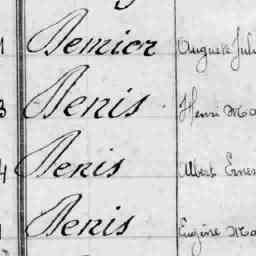 1 Demior Auguste Jul
3 Denis Henri Ma
4 Denis Albert Ernes
Denis Eugène Ma